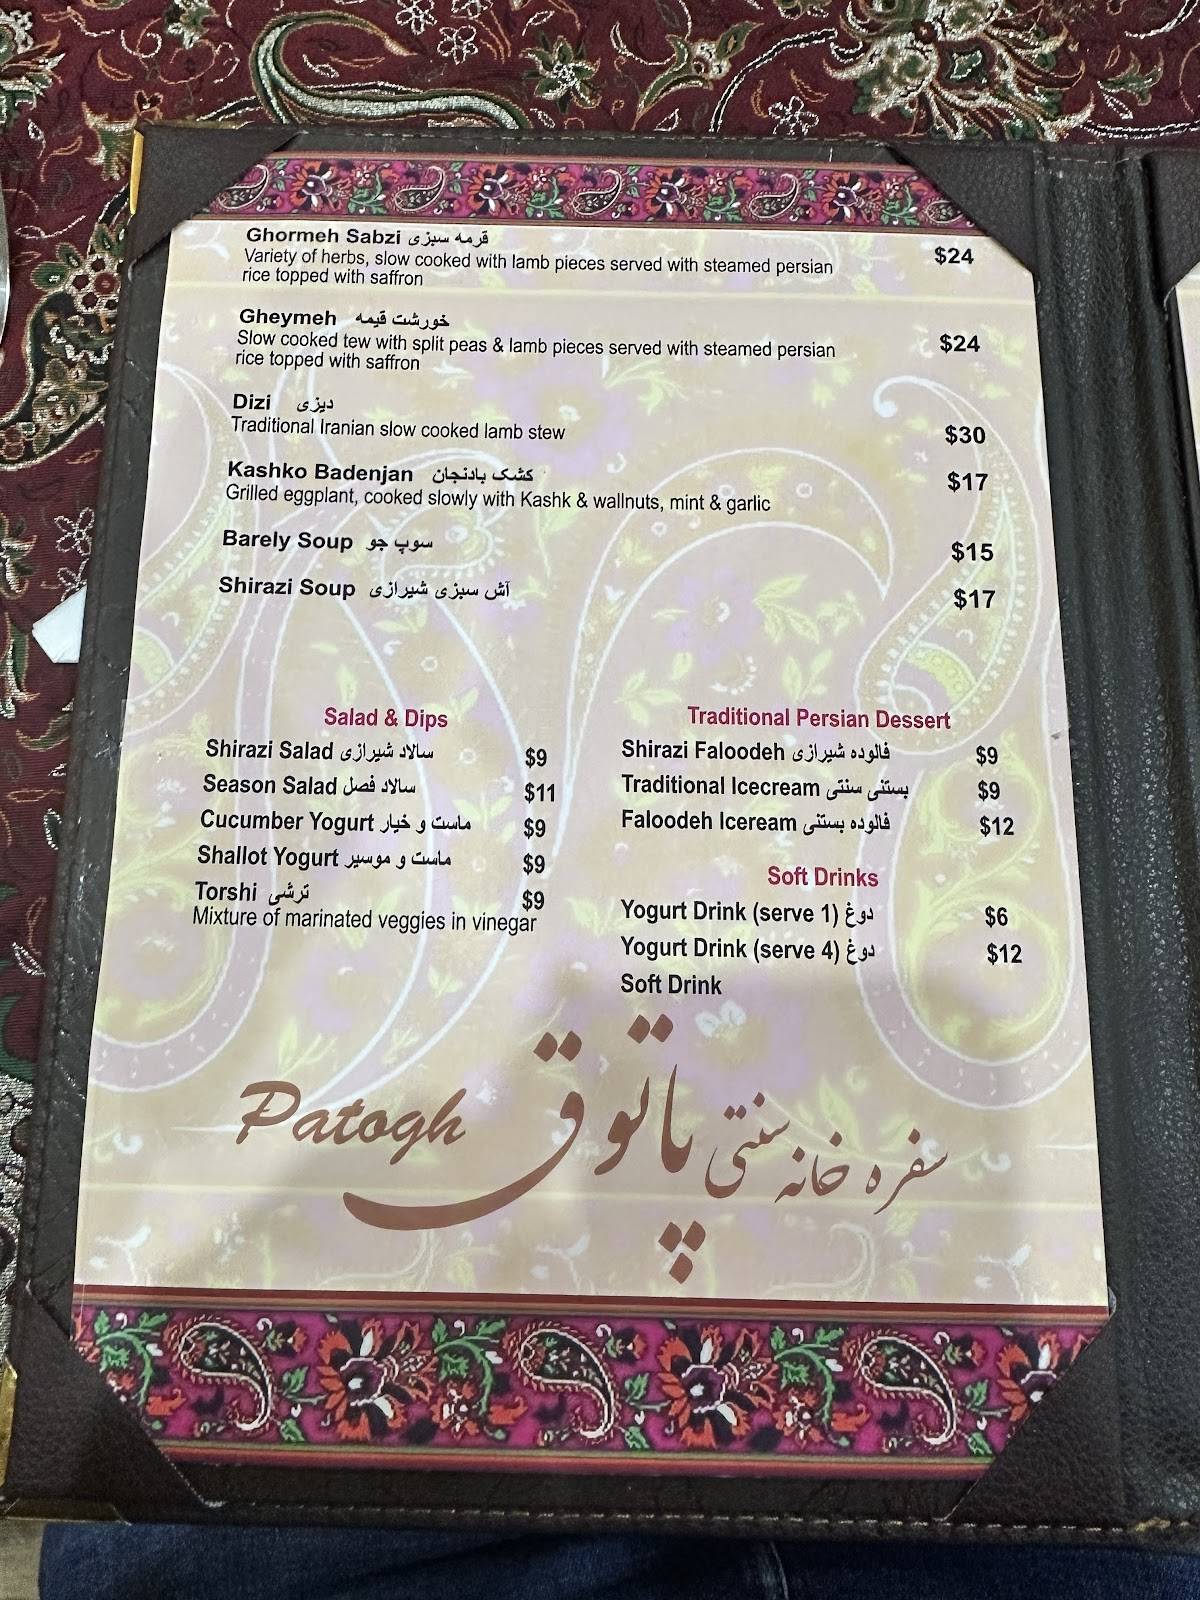 Ghormeh Sabzi قرمه سبزی $24
Variety of herbs, slow cooked with lamb pieces served with steamed persian
rice topped with saffron
Gheymeh خورشت قیمه $24
Slow cooked tew with split peas & lamb pieces served with steamed persian
rice topped with saffron
Dizi دیزی $30
Traditional Iranian slow cooked lamb stew
Kashko Badenjan کشک بادنجان $17
Grilled eggplant, cooked slowly with Kashk & wallnuts, mint & garlic
Barely Soup سوپ جو $15
Shirazi Soup آش سبزی شیرازی $17
Salad & Dips
Shirazi Salad سالاد شیرازی $9
Season Salad سالاد فصل $11
Cucumber Yogurt ماست و خیار $9
Shallot Yogurt ماست و موسیر $9
Torshi ترشی $9
Mixture of marinated veggies in vinegar
Traditional Persian Dessert
Shirazi Faloodeh فالوده شیرازی $9
Traditional Icecream بستنی سنتی $9
Faloodeh Iceream فالوده بستنی $12
Soft Drinks
Yogurt Drink (serve 1) دوغ $6
Yogurt Drink (serve 4) دوغ $12
Soft Drink
Patogh
سفره خانه سنتی پاتوق